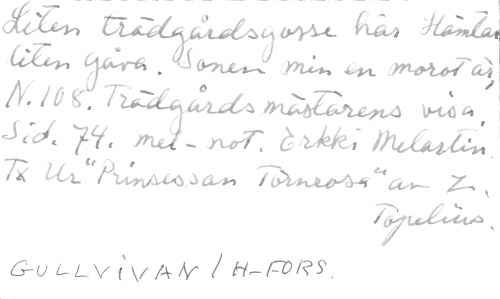 Liten trädgårdsgosse här Hämtar
liten gåva. Sonen min en morot är,
N. 108. Trädgårdsmästarens visa.
Sid. 74. mel-not. Erkki Melartin.
Tx Ur "Prinsessan Törnrosa" av Z.
Topelius.
GULLVIVAN / H-FORS.